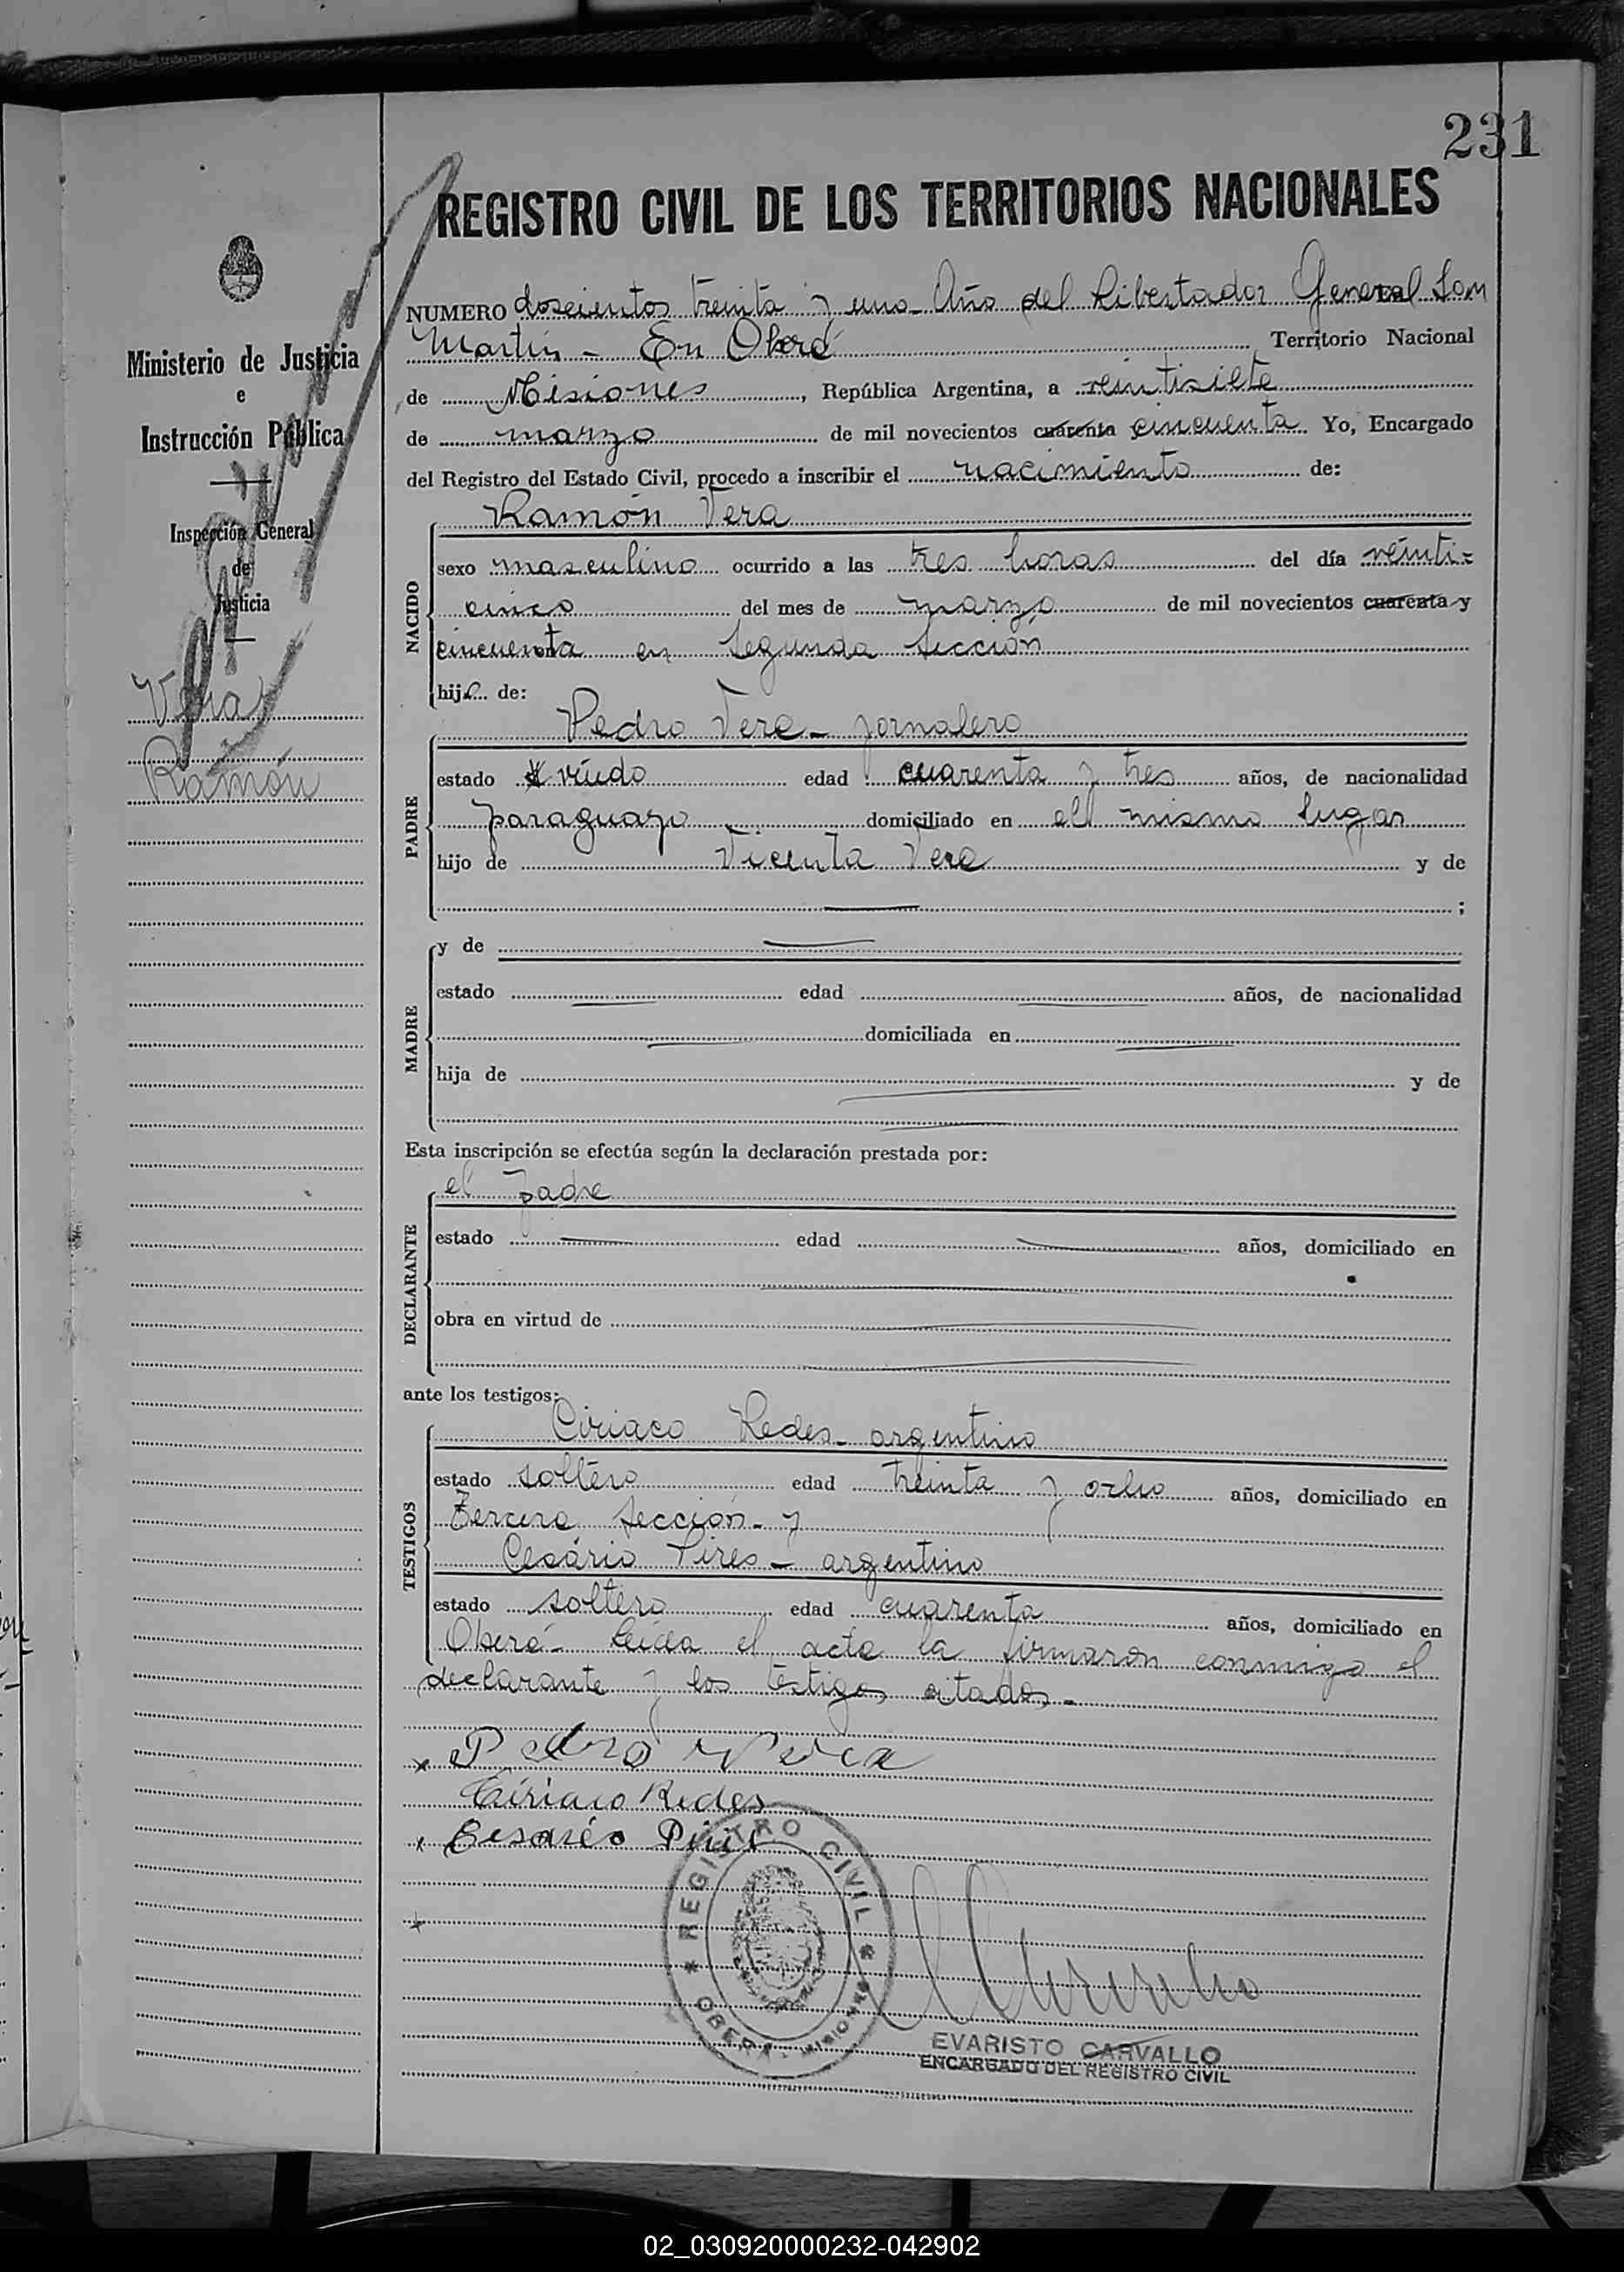 231
REGISTRO CIVIL DE LOS TERRITORIOS NACIONALES
Ministerio de Justicia
e
Instrucción Pública
Inspección General
de
Justicia
Vera
Ramón
NUMERO doscientos treinta y uno - Año del Libertador General San
Martín - En Oberá Territorio Nacional
de Misiones, República Argentina, a veintisiete
de marzo de mil novecientos cuarenta cincuenta Yo, Encargado
del Registro del Estado Civil, procedo a inscribir el nacimiento de:
NACIDO
Ramón Vera
sexo masculino ocurrido a las tres horas del día veinti-
cinco del mes de marzo de mil novecientos cuarenta y
cincuenta en Segunda Sección
hijo de:
PADRE
Pedro Vera - jornalero
estado viudo edad cuarenta y tres años, de nacionalidad
paraguayo domiciliado en el mismo lugar
hijo de Vicenta Vera y de
;
MADRE
y de
estado edad años, de nacionalidad
domiciliada en
hija de y de
Esta inscripción se efectúa según la declaración prestada por:
DECLARANTE
el padre
estado edad años, domiciliado en
obra en virtud de
ante los testigos:
TESTIGOS
Ciriaco Redes - argentino
estado soltero edad treinta y ocho años, domiciliado en
Tercera Sección - y
Cesário Pires - argentino
estado soltero edad cuarenta años, domiciliado en
Oberá - Leída el acta la firmaron conmigo el
declarante y los testigos citados -
Pedro Vera
Ciriaco Redes
Cesário
REGISTRO CIVIL
OBERA - MISIONES
EVARISTO CARVALLO
ENCARGADO DEL REGISTRO CIVIL
02_030920000232-042902